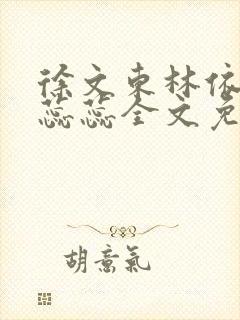 徐文东林依
蕊蕊全文免
胡意氣